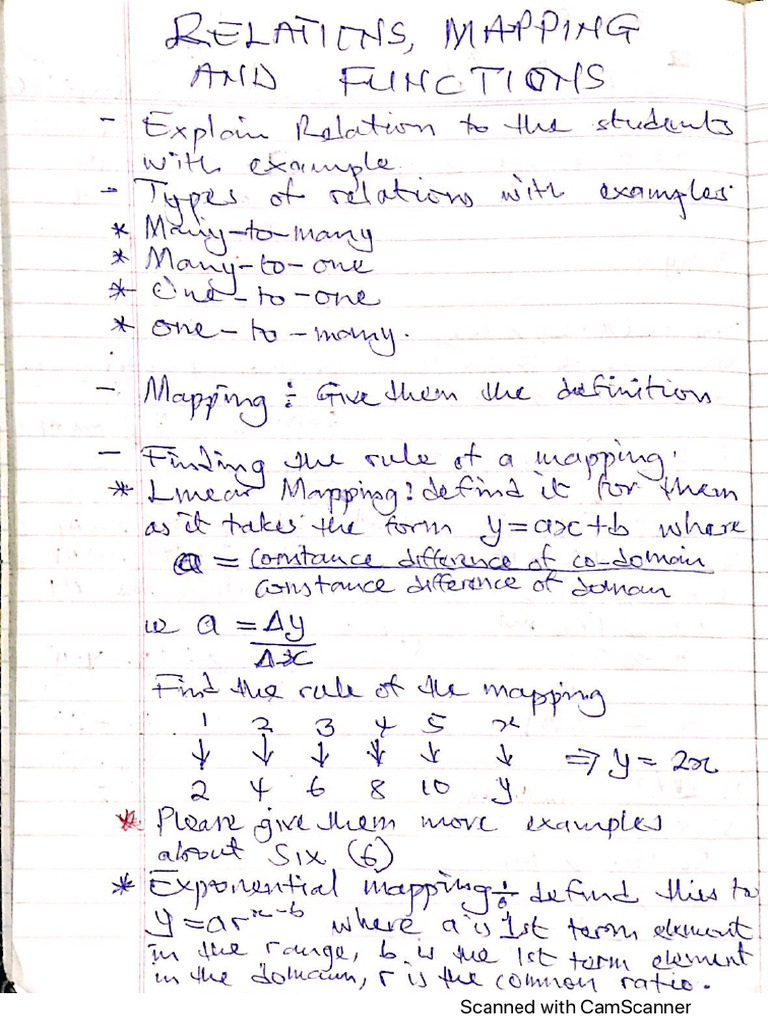 RELATIONS, MAPPING
AND FUNCTIONS
- Explain Relation to the students
with example.
- Types of relations with examples.
* Many-to-many
* Many-to-one
* One-to-one
* one-to-many.
- Mapping: Give them the definition
- Finding the rule of a mapping.
* Linear Mapping: defind it for them
as it takes the form y=ax+b where
a = constance difference of co-domain
constance difference of domain
ie a = Δy
Δx
Find the rule of the mapping
1 2 3 4 5 x
↓ ↓ ↓ ↓ ↓ ↓ ⇒ y = 2x
2 4 6 8 10 y
* Please give them more examples
about Six (6)
* Exponential mapping: defind this to
y = ar^(x-b) where a is 1st term element
in the range, b is the 1st term element
in the domain, r is the common ratio.
Scanned with CamScanner